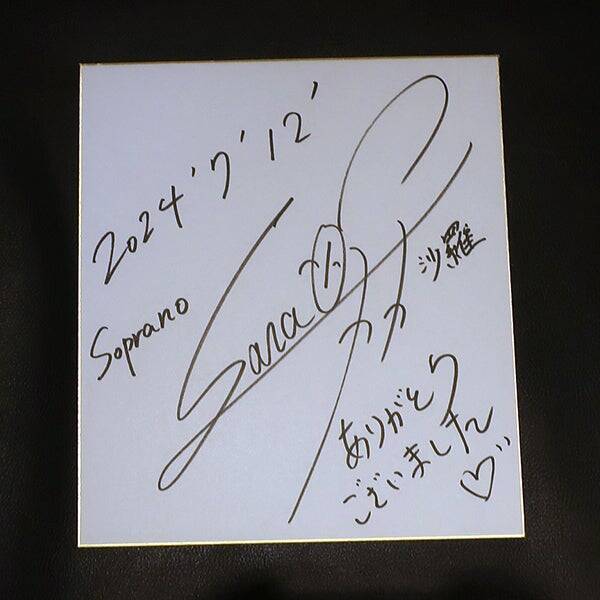 2024'7'12'
Soprano
Sara
沙羅
ありがとう
ございました♡